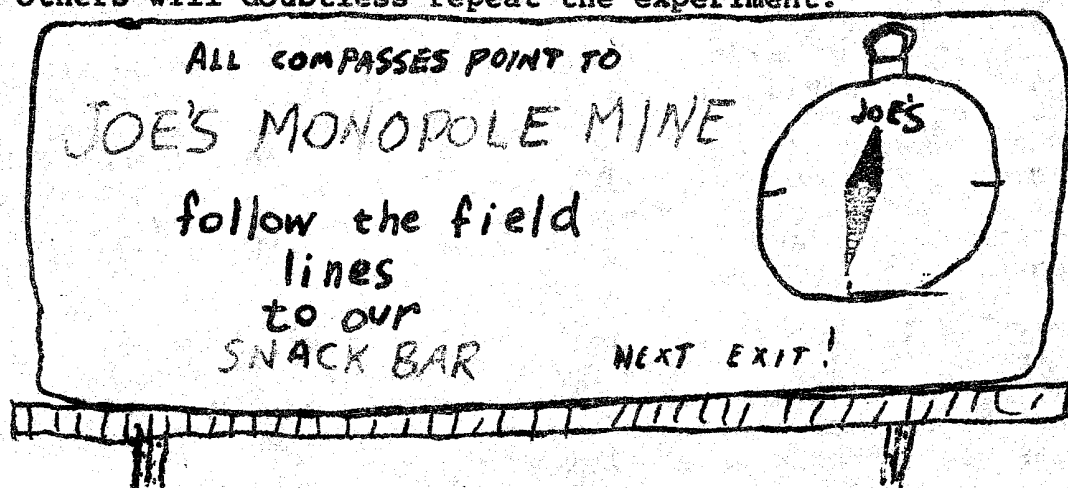 Others will doubtless repeat the experiment.
ALL COMPASSES POINT TO
JOE'S MONOPOLE MINE
JOE'S
follow the field
lines
to our
SNACK BAR
NEXT EXIT!